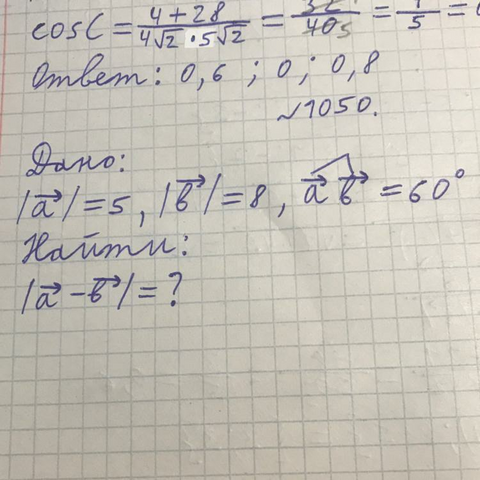 cosC = (4+28)/(4√2 · 5√2) = 32/40 = 4/5 =
Ответ: 0,6 ; 0 ; 0,8
№1050.
Дано:
|a⃗| = 5, |b⃗| = 8, a⃗ b⃗ = 60°
Найти:
|a⃗ - b⃗| = ?